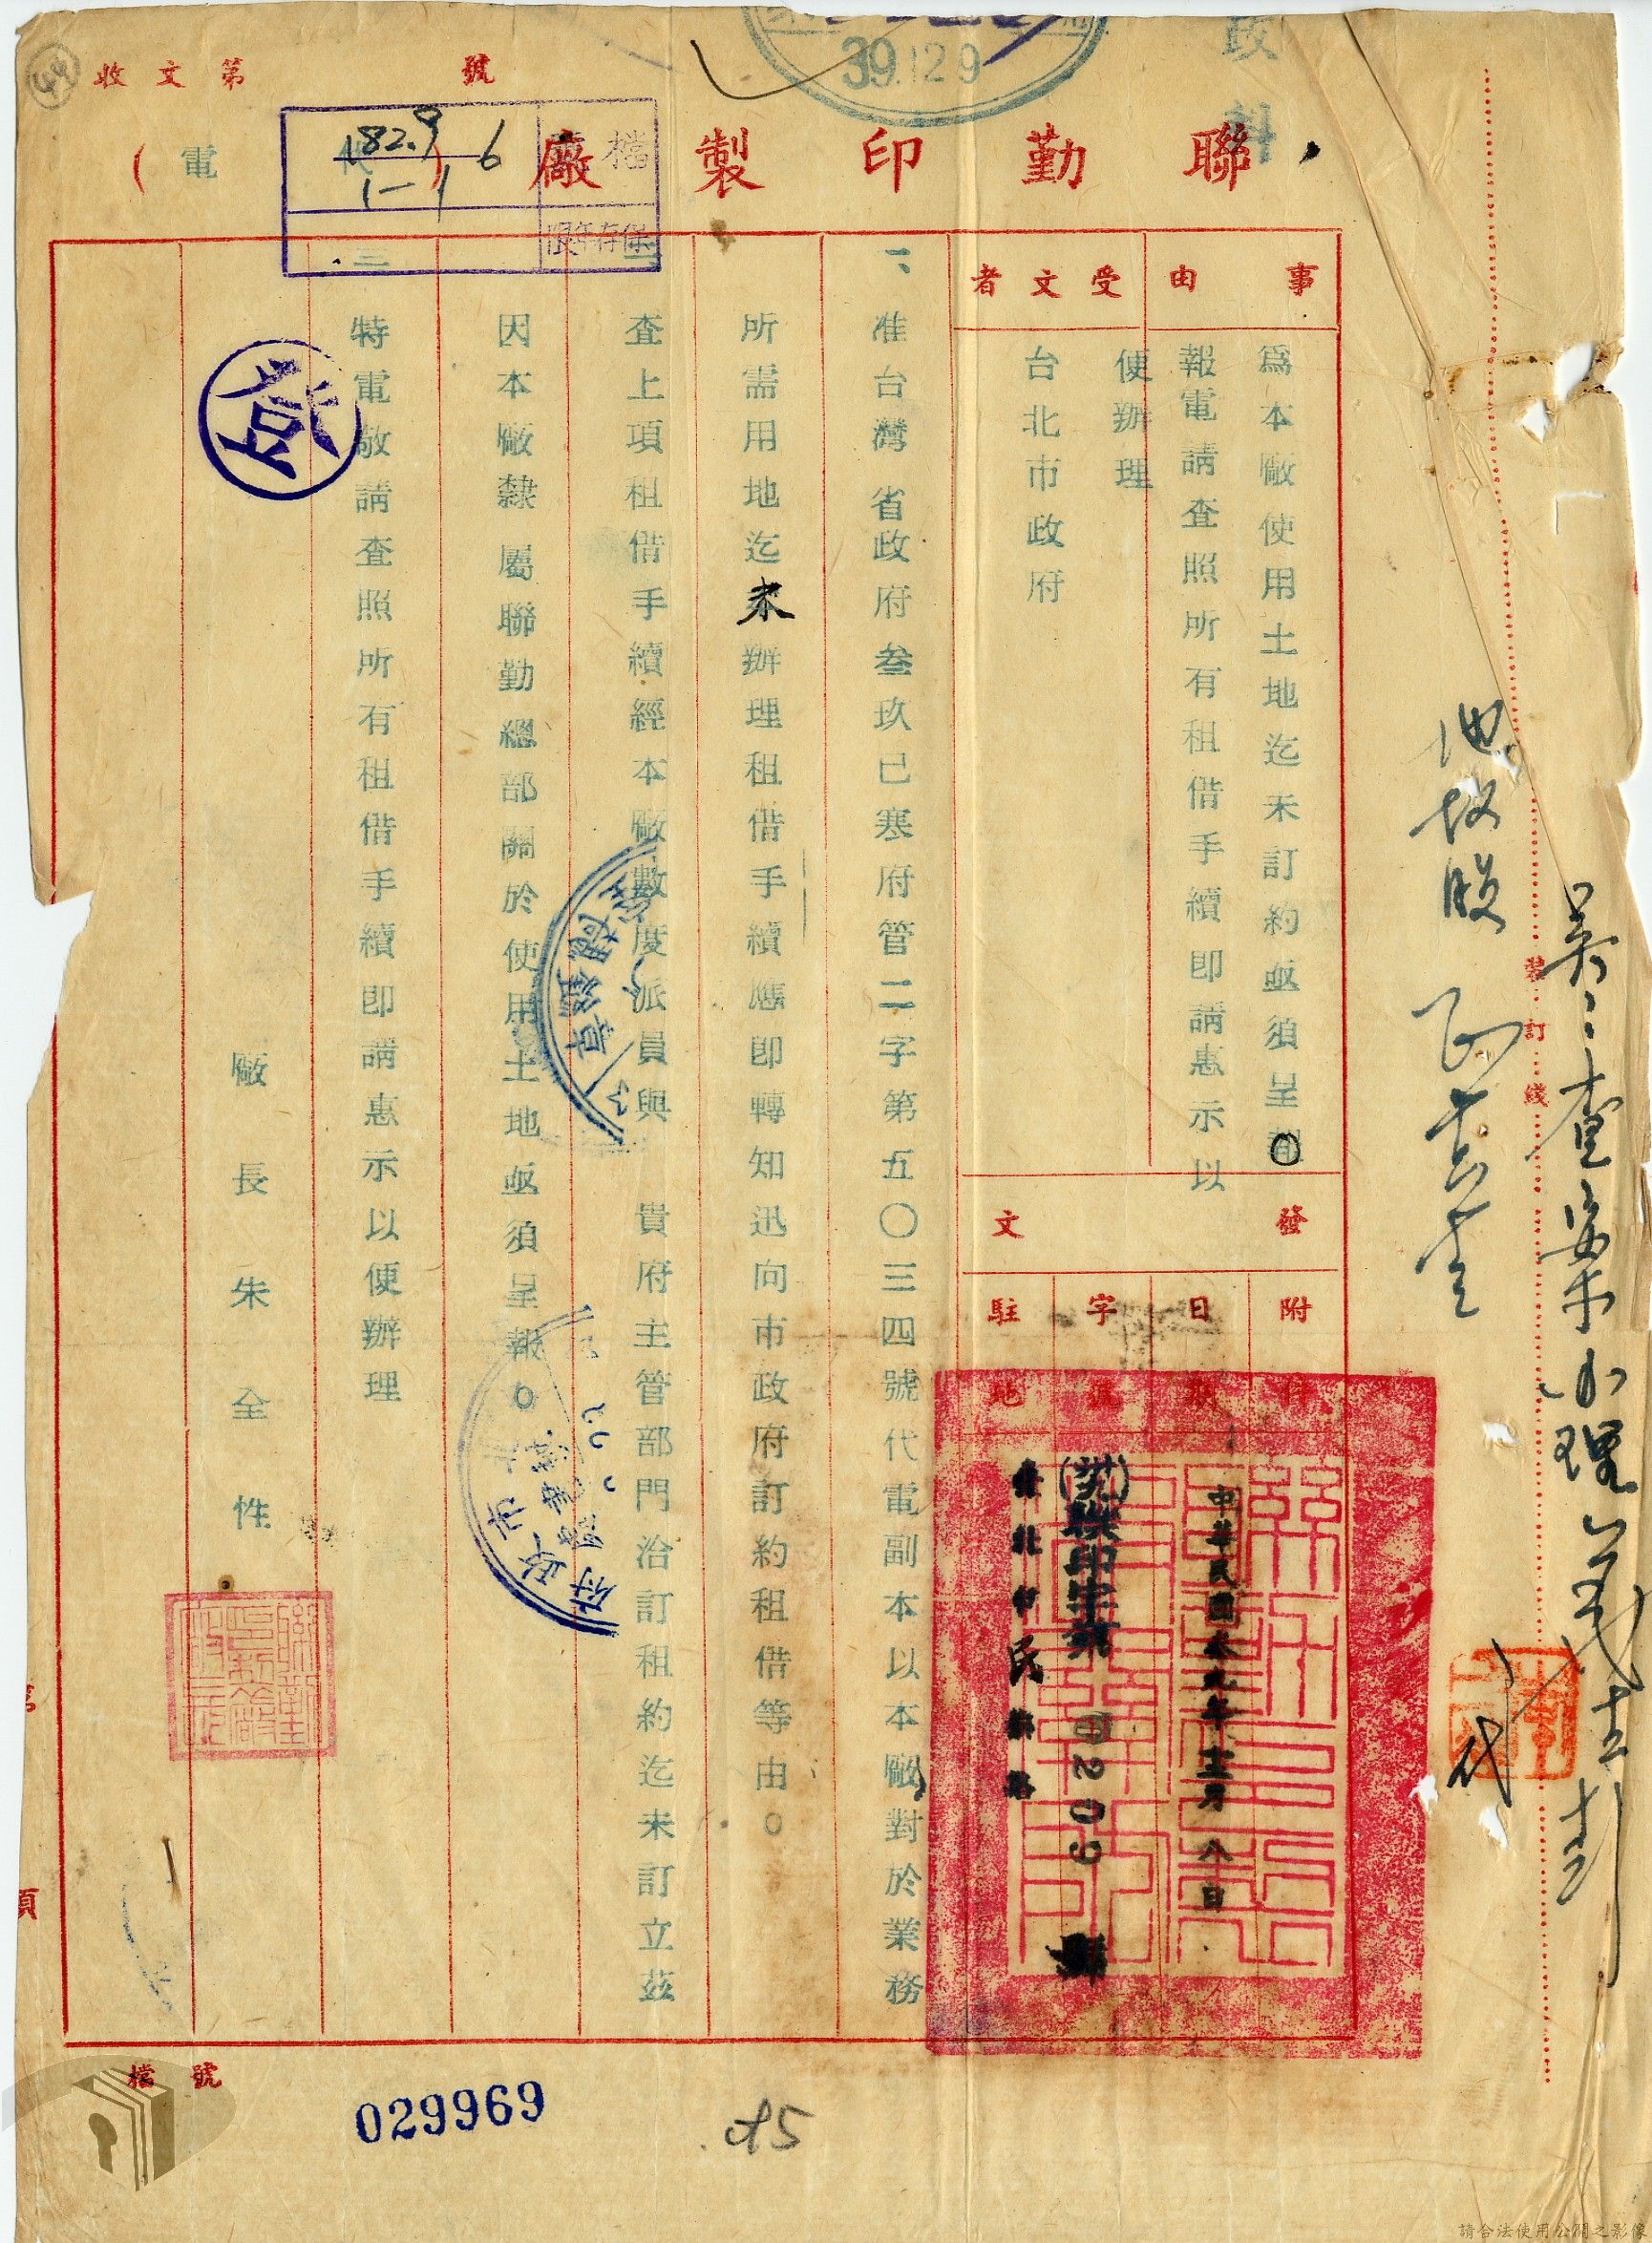 收文第 號
39.12.9
政 科
聯勤印製廠
(代電)
檔
182.9
1-1
6
保存年限
事由
為本廠使用土地迄未訂約亟須呈報
報電請查照所有租借手續即請惠示以
便辦理
受文者
台北市政府
發文
附件
日期
中華民國叁九年十二月八日
字號
聯印字第0209號
駐地
臺北市民族路
一、准台灣省政府叁玖已寒府管二字第五〇三四號代電副本以本廠對於業務
所需用地迄未辦理租借手續應即轉知迅向市政府訂約租借等由。
二查上項租借手續經本廠數度派員與 貴府主管部門洽訂租約迄未訂立茲
因本廠隸屬聯勤總部關於使用土地亟須呈報。
三特電敬請查照所有租借手續即請惠示以便辦理
廠長朱全性
登
裝訂線
第 頁
檔號
029969
請合法使用公開之影像